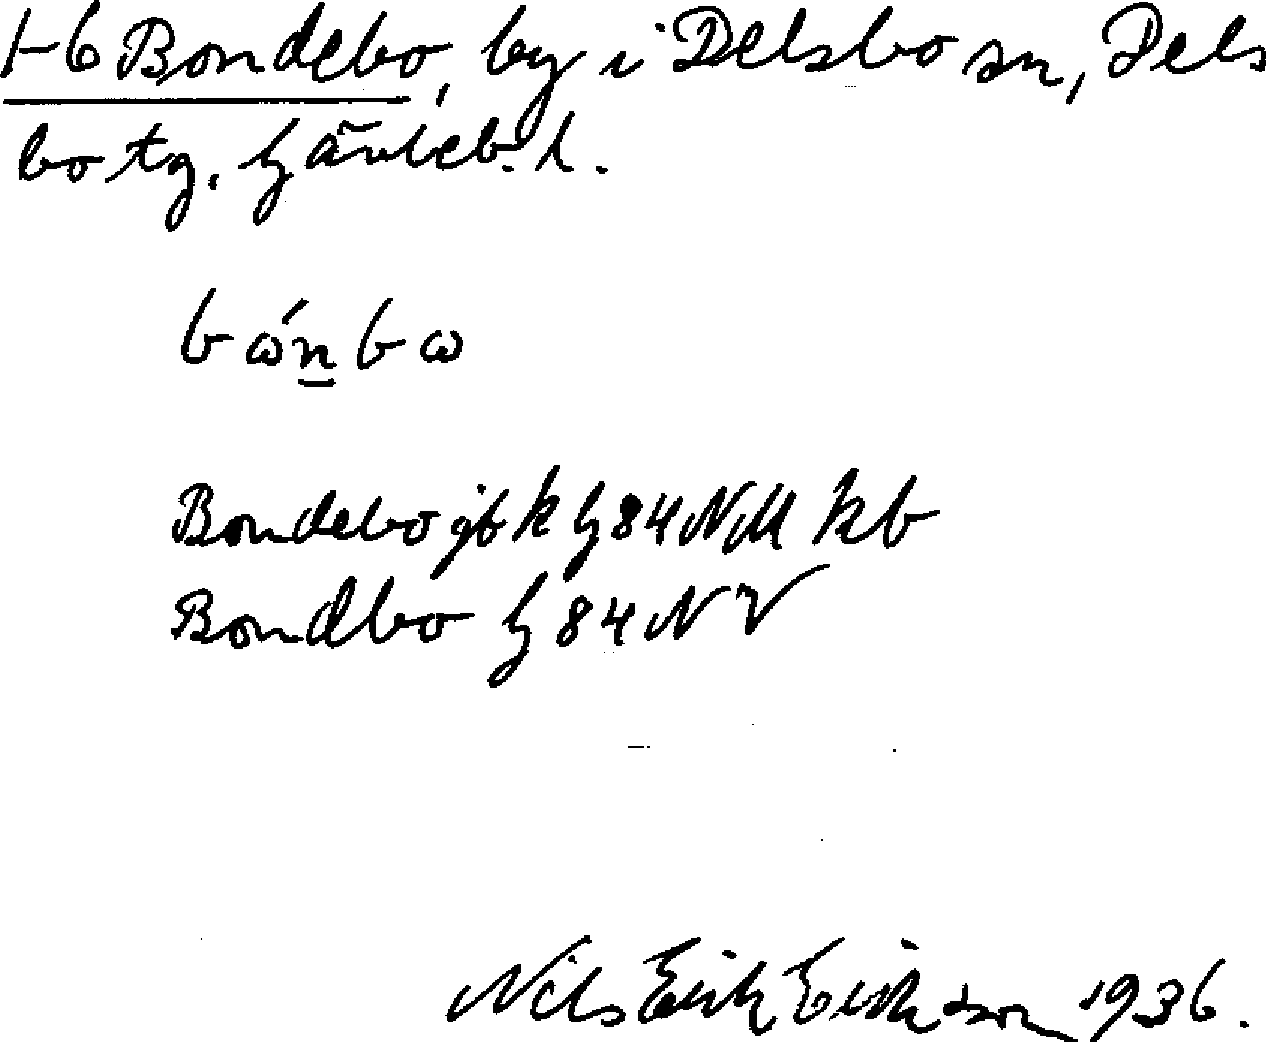 1-6 Bondebo, by i Delsbo sn, Dels
bo tg. Gävleb. l.
bǿn̲bω
Bondebo jbk h 84 NM kb
Bondbo h 84 NV
Nils Erik Erikson 1936.